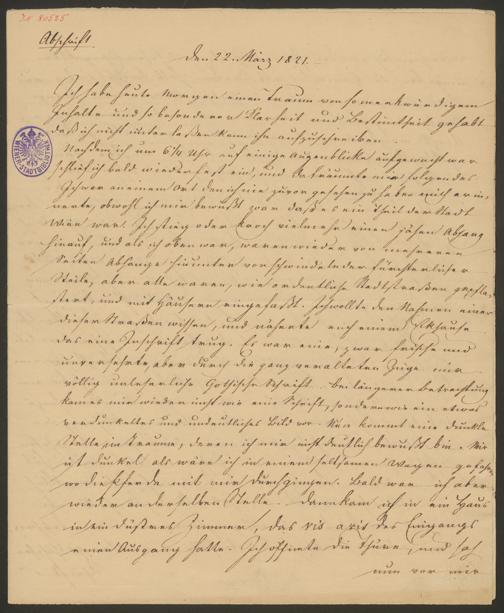 IN 80525
Abschrift.
Den 22. März 1821.
Ich habe heute Morgen einen Traum von so merkwürdigem
Inhalte und so besonderer Klarheit und Bestimmtheit gehabt
daß ich nicht unterlassen kann ihn aufzuschreiben.
Nachdem ich um 6¼ Uhr auf einige Augenblicke aufgewacht war
schlief ich bald wieder fest ein, und da träumte mir folgendes
Ich war an einem Ort den ich nie zuvor gesehen zu haben mich erin,
nerte, obwohl ich mir bewußt war daß es ein Theil der Stadt
Wien war. Ich stieg oder kroch vielmehr einen jähen Abhang
hinauf, und als ich oben war, waren wieder von mehreren
Seiten Abhänge hinunter von schwindelnder fürchterlicher
Steile, aber alle waren, wie ordentliche Stadtstraßen gepfla,
stert, und mit Häusern eingefaßt. Ich wollte den Nahmen einer
dieser Straßen wissen, und näherte mich einem Eckhause
das eine Inschrift trug. Es war eine, zwar frische und
unversehrte, aber durch die ganz veralteten Züge mir
völlig unleserliche Gothische Schrift. Bei längerer Betrachtung
kam es mir wieder nicht wie eine Schrift, sondern wie ein etwas
verdunkeltes und undeutliches Bild vor. Nun kommt eine dunkle
Stelle im Traume, deren ich mir nicht deutlich bewußt bin. Mir
ist dunkel als wäre ich in einem seltsamen Wagen gefahren
wo die Pferde mit mir durchgingen. Bald war ich aber
wieder an derselben Stelle. Dann kam ich in ein Haus
in ein düstres Zimmer, das vis à vis des Eingangs
einen Ausgang hatte. Ich öffnete die Thüre, und sah
nun vor mir
WIENER STADTBIBLIOTHEK